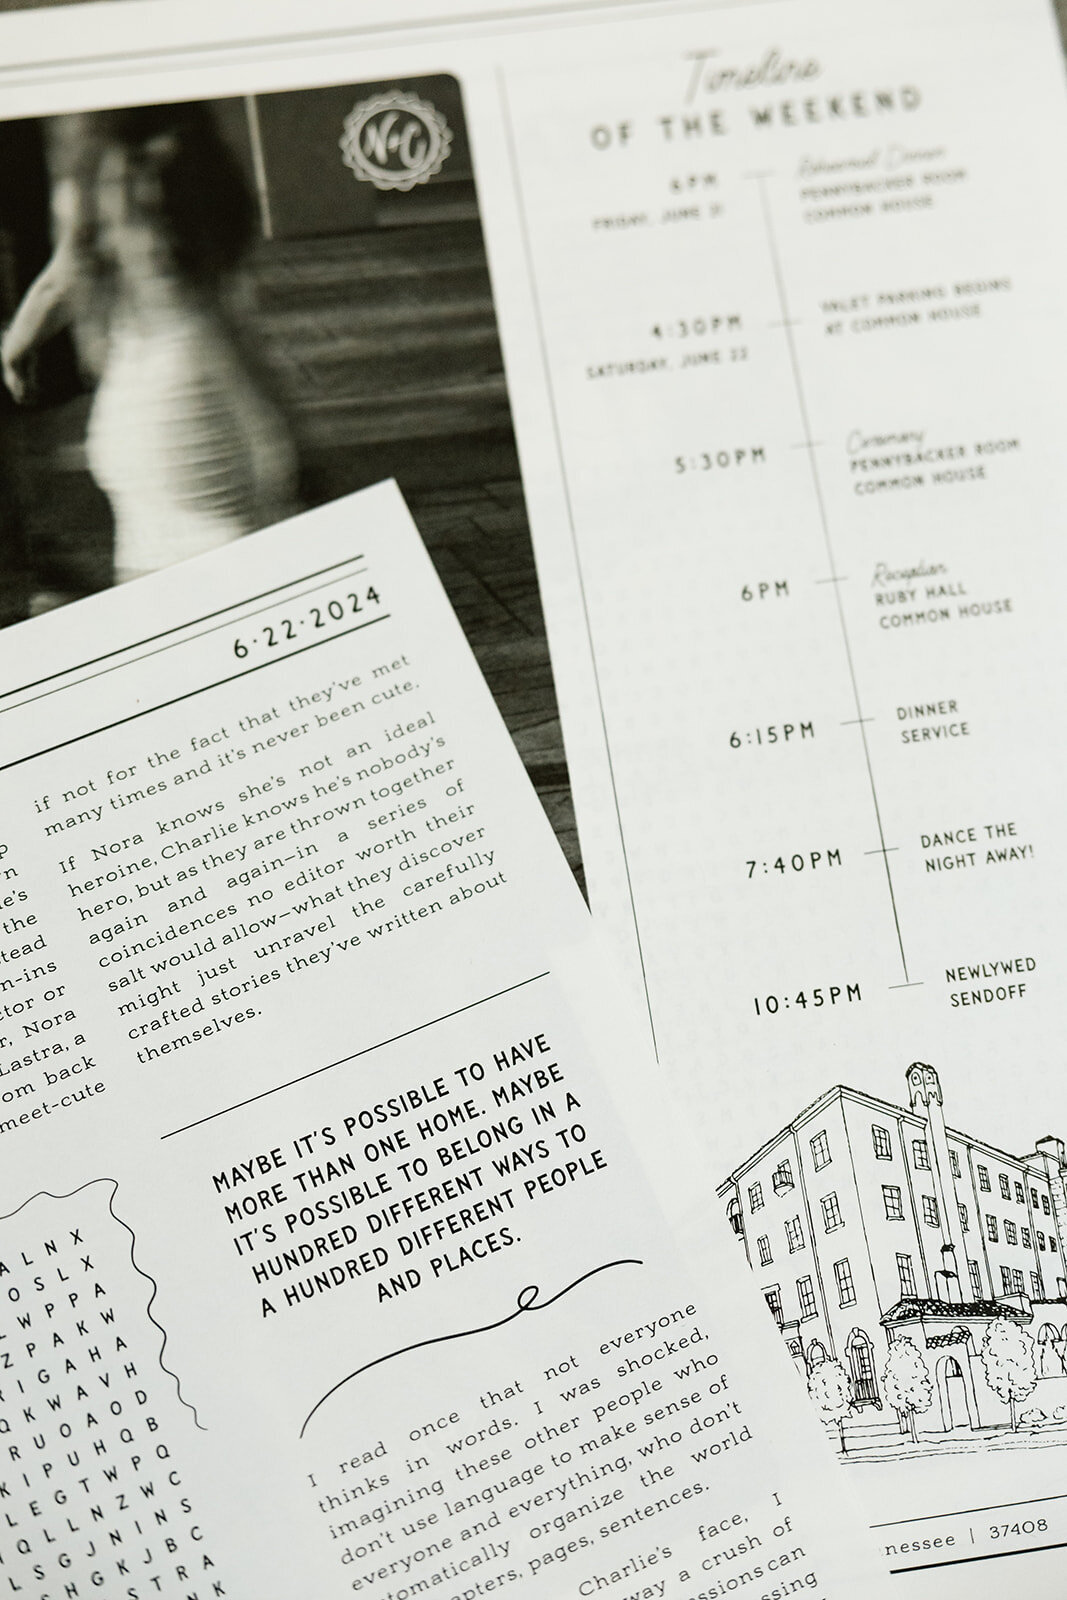 N+C
Timeline
OF THE WEEKEND
6PM
FRIDAY, JUNE 21
Rehearsal Dinner
PENNYBACKER ROOM
COMMON HOUSE
4:30PM
SATURDAY, JUNE 22
VALET PARKING BEGINS
AT COMMON HOUSE
5:30PM
Ceremony
PENNYBACKER ROOM
COMMON HOUSE
6PM
Reception
RUBY HALL
COMMON HOUSE
6:15PM
DINNER
SERVICE
7:40PM
DANCE THE
NIGHT AWAY!
10:45PM
NEWLYWED
SENDOFF
nessee | 37408
6·22·2024
p
'n
e's
the
tead
n-ins
ctor or
r, Nora
Lastra, a
om back
meet-cute
if not for the fact that they've met
many times and it's never been cute.
If Nora knows she's not an ideal
heroine, Charlie knows he's nobody's
hero, but as they are thrown together
again and again—in a series of
coincidences no editor worth their
salt would allow—what they discover
might just unravel the carefully
crafted stories they've written about
themselves.
MAYBE IT'S POSSIBLE TO HAVE
MORE THAN ONE HOME. MAYBE
IT'S POSSIBLE TO BELONG IN A
HUNDRED DIFFERENT WAYS TO
A HUNDRED DIFFERENT PEOPLE
AND PLACES.
I read once that not everyone
thinks in words. I was shocked,
imagining these other people who
don't use language to make sense of
everyone and everything, who don't
tomatically organize the world
apters, pages, sentences.
Charlie's face, I
way a crush of
essions can
ssing
A L N X
O S L X
L W P P A
Z P A K W
R I G A H A
Q K W A V H
R U O A O D
K I P U H Q B
L E G T W P Q
I Q L L N Z W C
L S G J N I N S
C H G K J B C
S T R A
N K